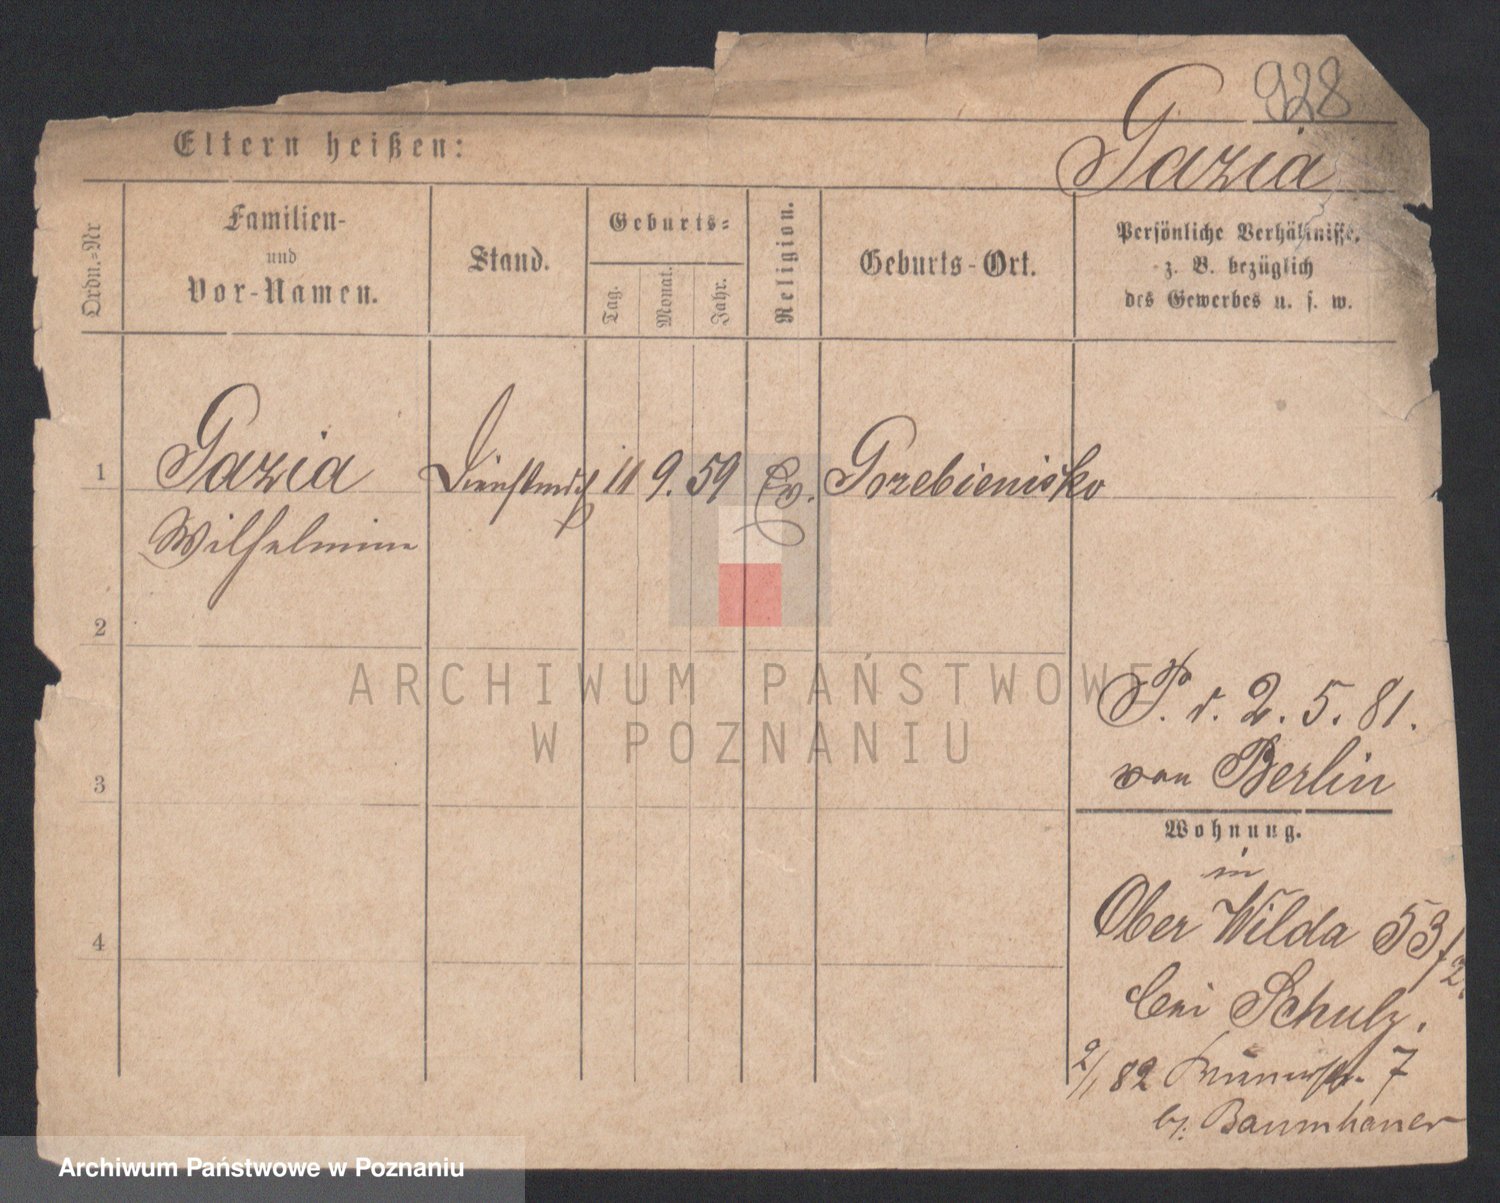 928
Gazia
Eltern heißen:
Ordn.=Nr
Familien-
und
Vor-Namen.
Stand.
Geburts=
Tag.
Monat.
Jahr.
Religion.
Geburts-Ort.
Persönliche Verhältnisse,
z. B. bezüglich
des Gewerbes u. s. w.
1 Gazia 11 9. 59 Ev. Grzebienisko
Wilhelmine
2
ARCHIWUM PAŃSTWOWE
W POZNANIU
P. d. 2. 5. 81.
von Berlin
3
Wohnung.
in
Ober Wilda 53/2.
4
bei Schulz.
2/1 82 7
b/. Baumhauer
Archiwum Państwowe w Poznaniu